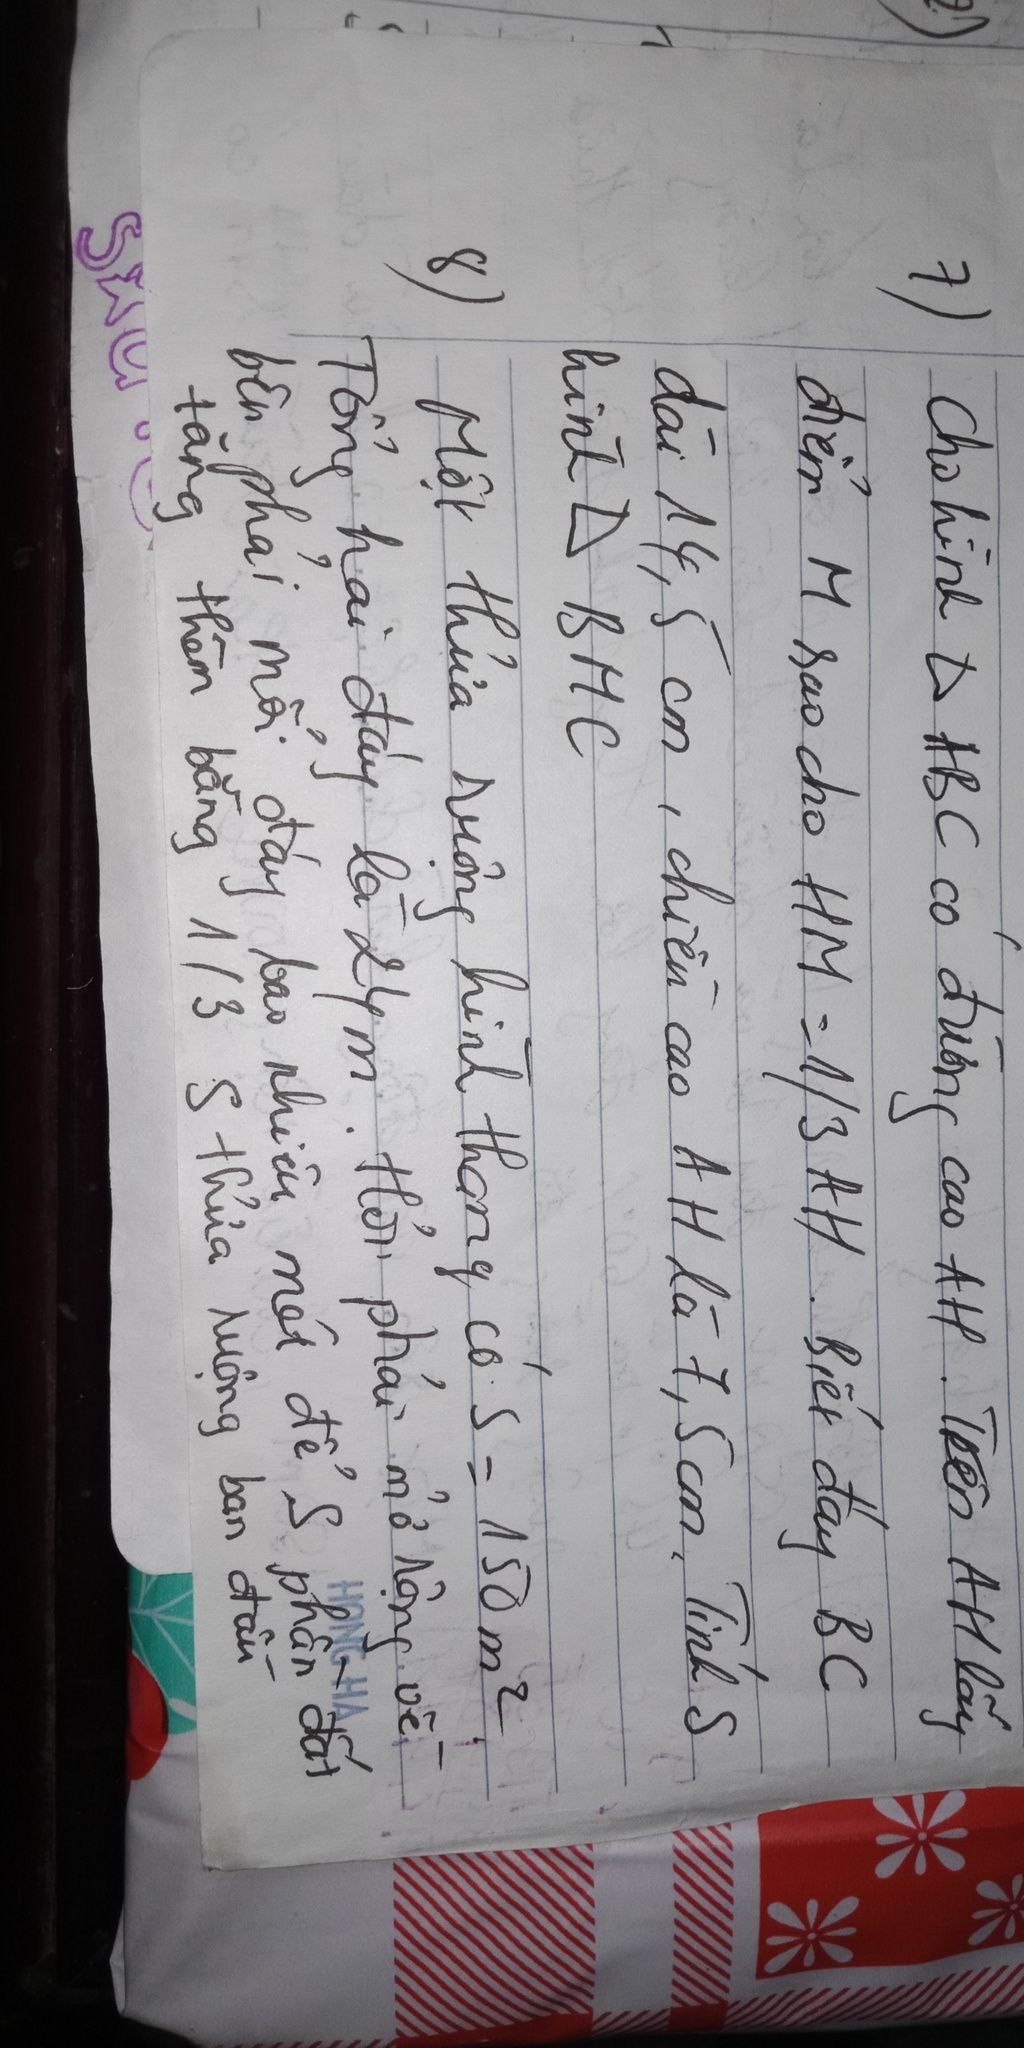 7) Cho hình △ ABC có đường cao AH. Trên AH lấy
điểm M sao cho HM = 1/3 AH. Biết đáy BC
dài 14,5 cm, chiều cao AH là 7,5 cm. Tính S
hình △ BMC
8) Một thửa ruộng hình thang có S = 150 m²
Tổng hai đáy là 24 m. Hỏi phải mở rộng về
bên phải mỗi đáy bao nhiêu mét để S phần đất
tăng thêm bằng 1/3 S thửa ruộng ban đầu
HONG HA